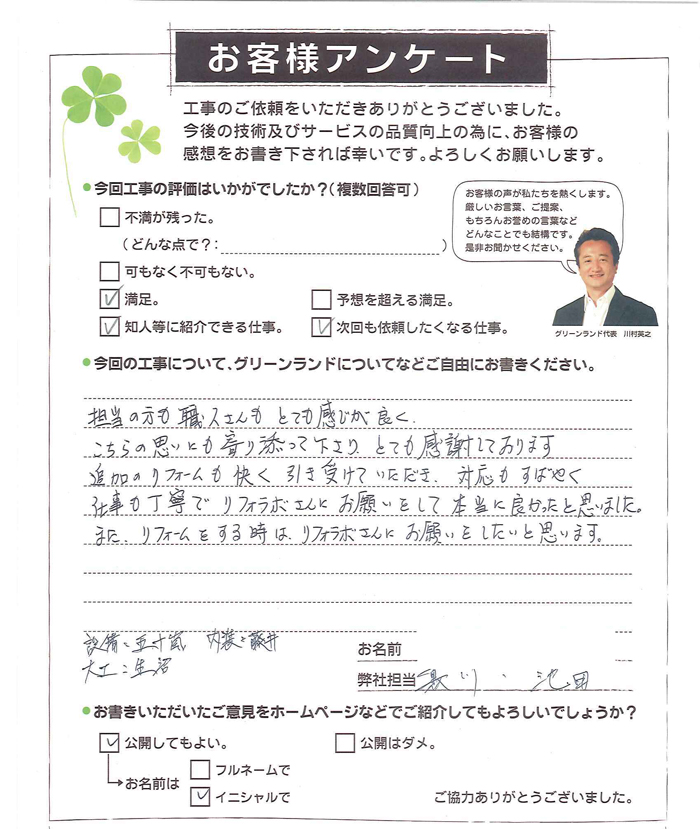 お客様アンケート
工事のご依頼をいただきありがとうございました。
今後の技術及びサービスの品質向上の為に、お客様の
感想をお書き下されば幸いです。よろしくお願いします。
今回工事の評価はいかがでしたか?(複数回答可)
不満が残った。
(どんな点で?: )
可もなく不可もない。
満足。
予想を超える満足。
知人等に紹介できる仕事。
次回も依頼したくなる仕事。
お客様の声が私たちを熱くします。
厳しいお言葉、ご提案、
もちろんお誉めの言葉など
どんなことでも結構です。
是非お聞かせください。
グリーンランド代表 川村英之
今回の工事について、グリーンランドについてなどご自由にお書きください。
担当の方も職人さんも とても感じが良く、
こちらの思いにも寄り添って下さり とても感謝しております
追加のリフォームも快く引き受けていただき、対応もすばやく
仕事も丁寧で リフォラボさんに お願いをして 本当に良かったと思いました。
また、リフォームをする時は、リフォラボさんに お願いをしたいと思います。
設備:五十嵐 内装:藤井
大工:生沼
お名前
弊社担当 川・池田
お書きいただいたご意見をホームページなどでご紹介してもよろしいでしょうか?
公開してもよい。
公開はダメ。
お名前は
フルネームで
イニシャルで
ご協力ありがとうございました。